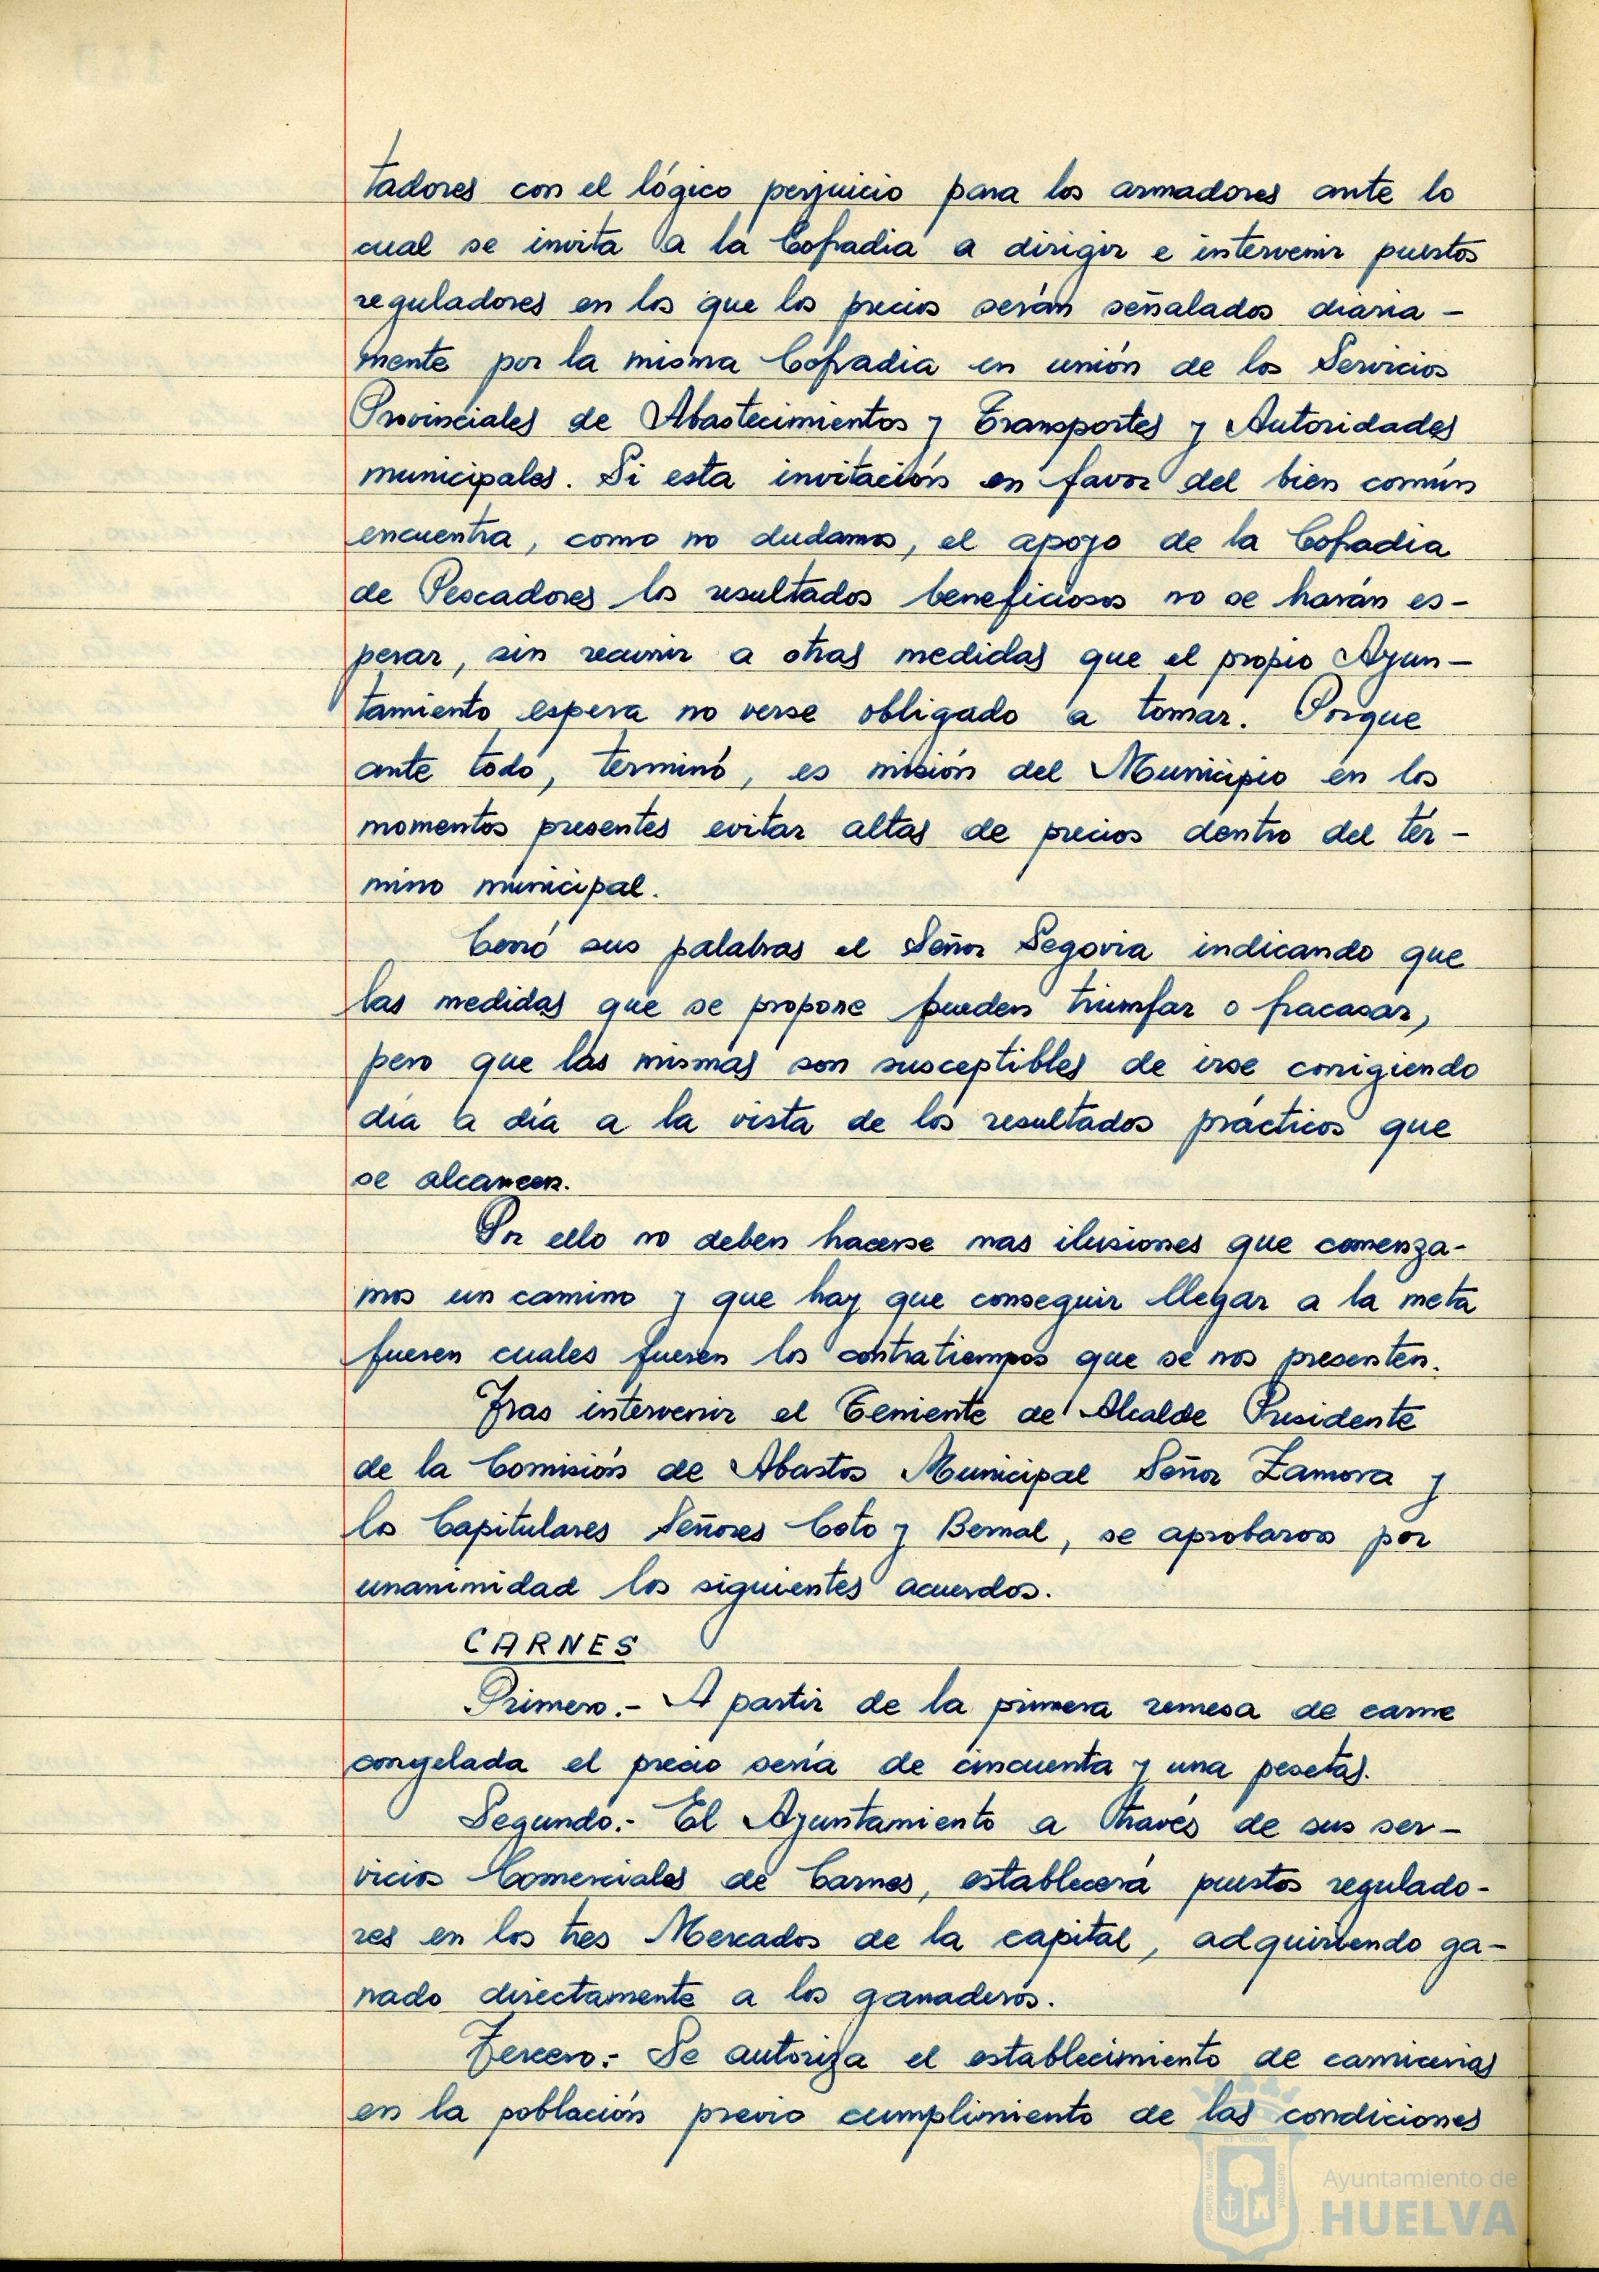 tadores con el lógico perjuicio para los armadores ante lo
cual se invita a la Cofradia a dirigir e intervenir puestos
reguladores en los que los precios serán señalados diaria-
mente por la misma Cofradia en unión de los Servicios
Provinciales de Abastecimientos y Transportes y Autoridades
municipales. Si esta invitación en favor del bien común
encuentra, como no dudamos, el apoyo de la Cofradia
de Pescadores los resultados beneficiosos no se harán es-
perar, sin recurrir a otras medidas que el propio Ayun-
tamiento espera no verse obligado a tomar. Porque
ante todo, terminó, es misión del Municipio en los
momentos presentes evitar altas de precios dentro del tér-
mino municipal.
Cerró sus palabras el Señor Segovia indicando que
las medidas que se propone pueden triumfar o fracasar,
pero que las mismas son susceptibles de irse corrigiendo
día a día a la vista de los resultados prácticos que
se alcancen.
Por ello no deben hacerse mas ilusiones que comenza-
mos un camino y que hay que conseguir llegar a la meta
fuesen cuales fuesen los contratiempos que se nos presenten.
Tras intervenir el Teniente de Alcalde Presidente
de la Comisión de Abastos Municipal Señor Zamora y
los Capitulares Señores Coto y Bernal, se aprobaron por
unanimidad los siguientes acuerdos.
CARNES
Primero.- A partir de la primera remesa de carne
congelada el precio sería de cincuenta y una pesetas.
Segundo.- El Ayuntamiento a través de sus ser-
vicios Comerciales de Carnes, establecerá puestos regulado-
res en los tres Mercados de la capital, adquiriendo ga-
nado directamente a los ganaderos.
Tercero.- Se autoriza el establecimiento de carnicerias
en la población previo cumplimiento de las condiciones
PORTUS MARIS
ET TERRA
CUSTODIA
Ayuntamiento de
HUELVA